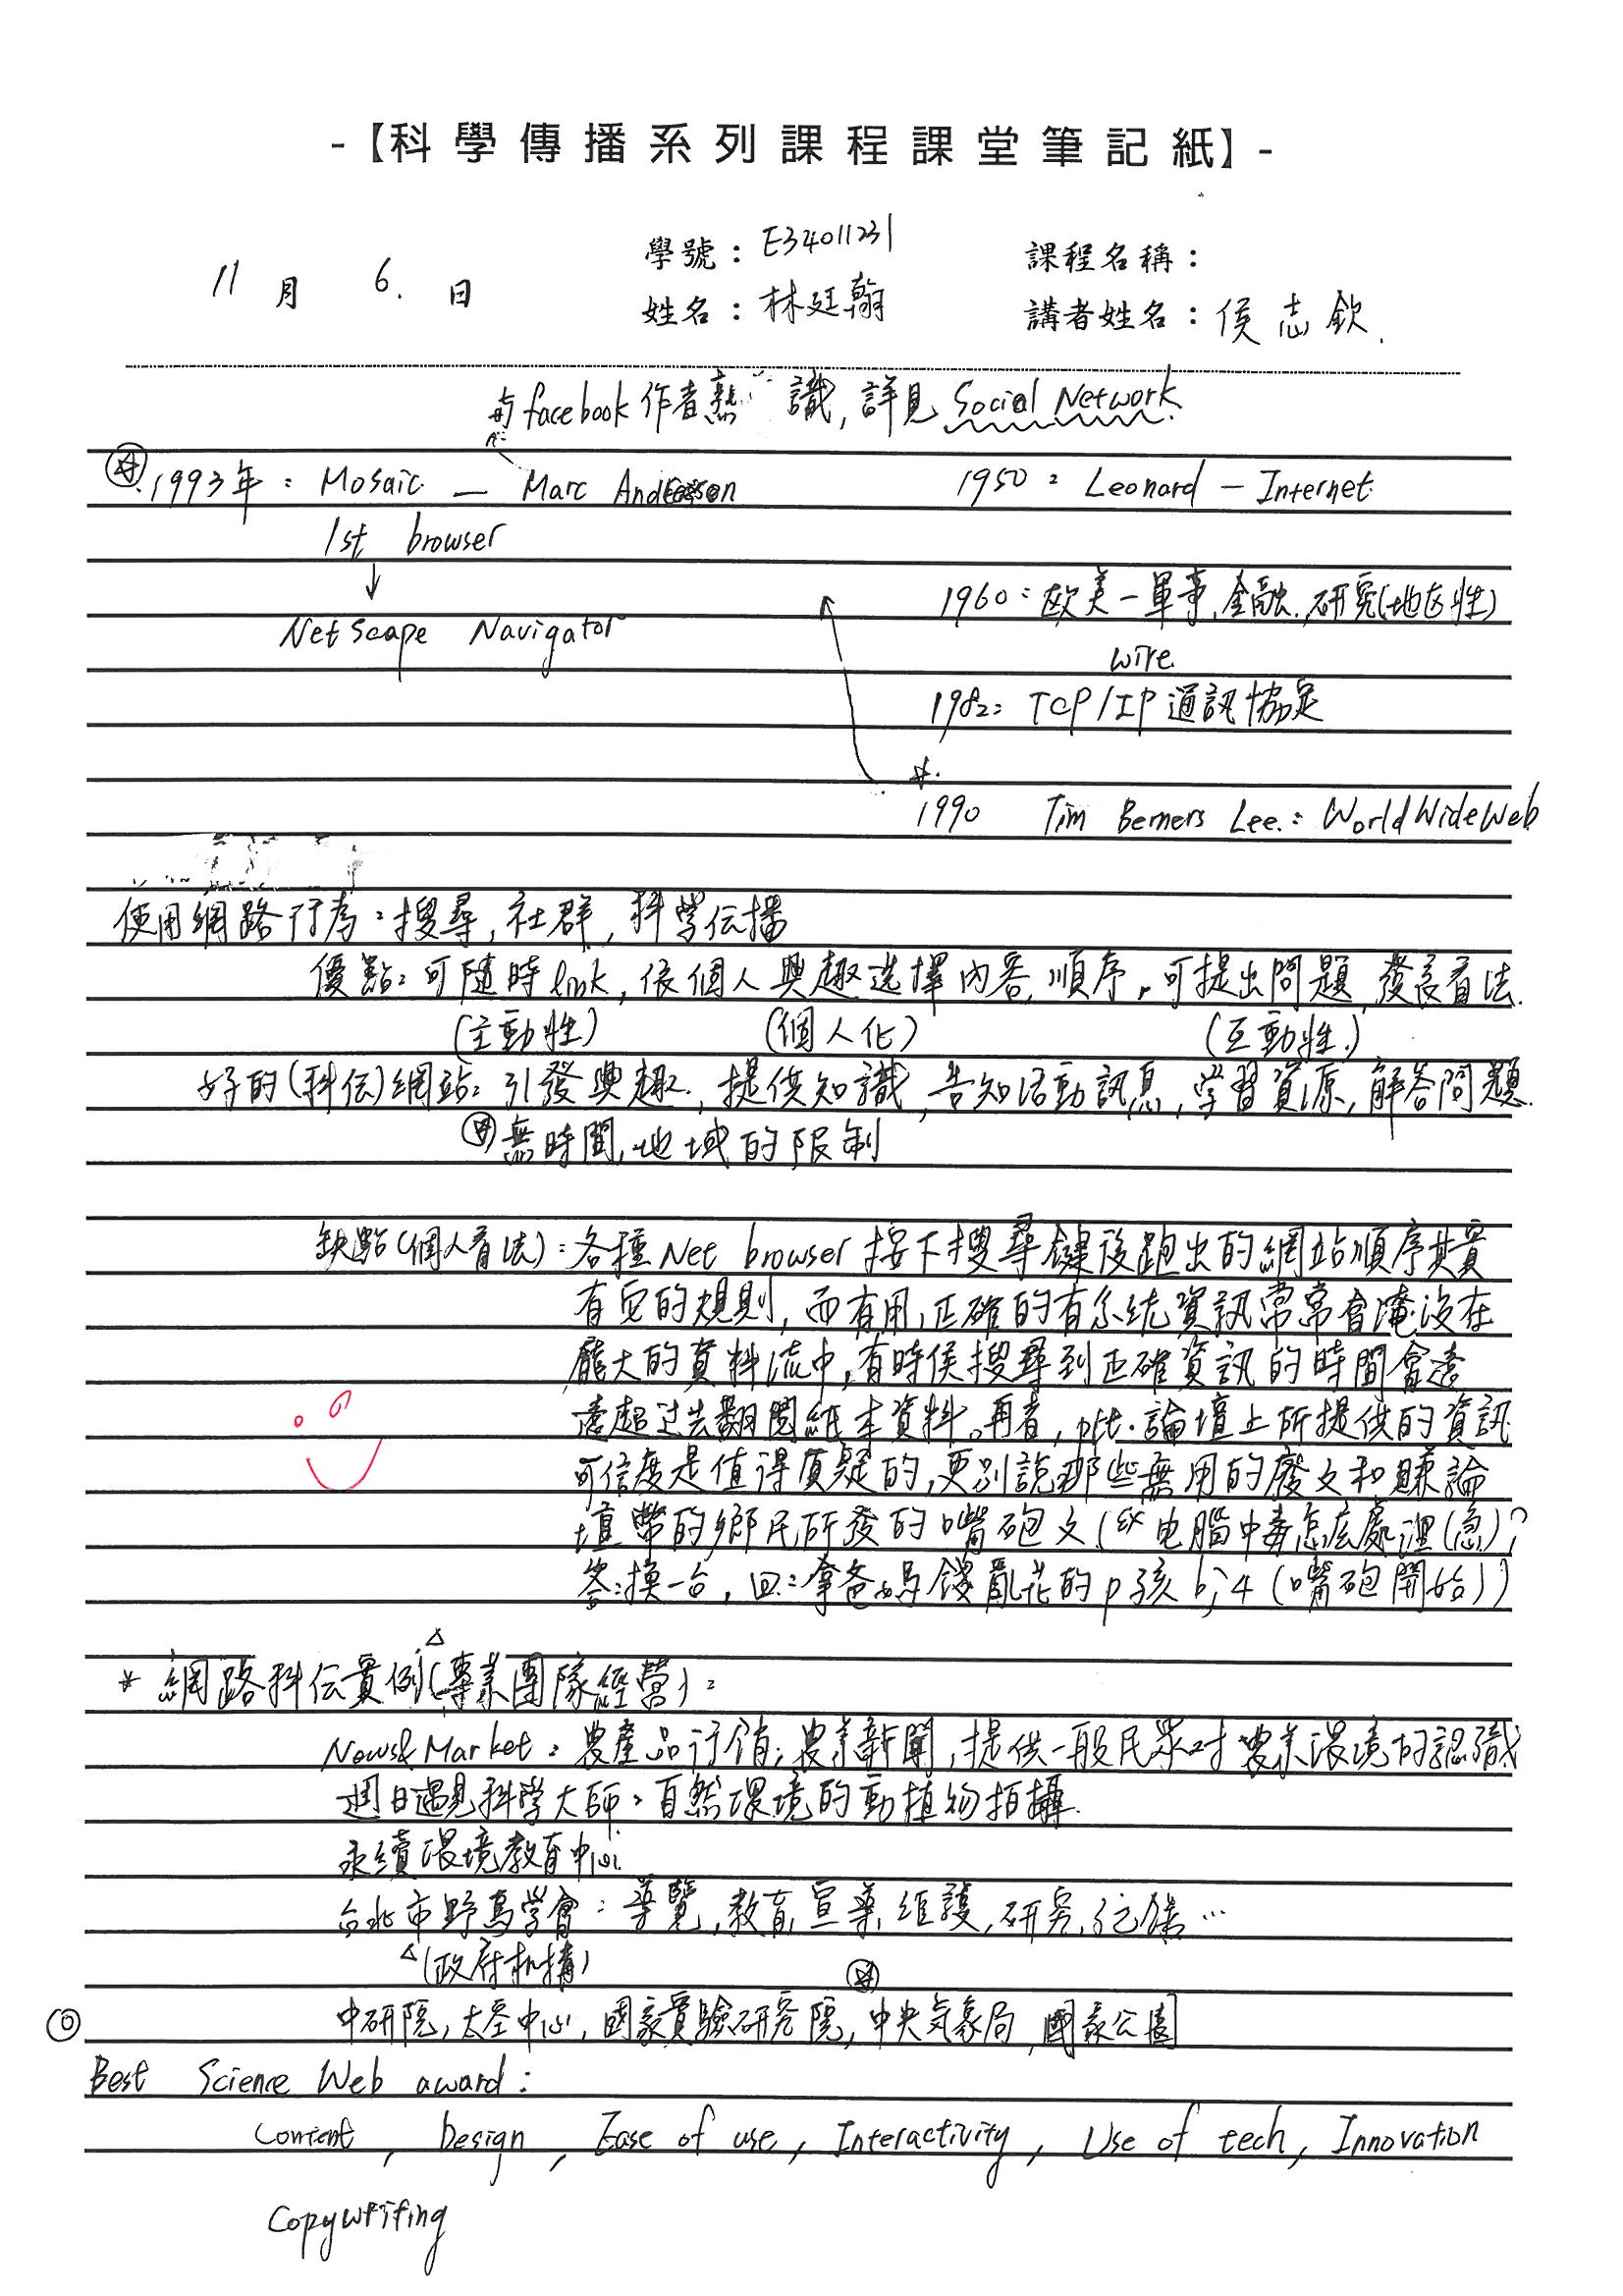 -【科學傳播系列課程課堂筆記紙】-
11 月 6. 日
學號：E34011231
姓名：林廷翰
課程名稱：
講者姓名：侯志欽.
與facebook作者熟識, 詳見 Social Network.
1993年： Mosaic — Marc Anderson
1950： Leonard — Internet
1st browser
↓
1960：欧美—軍事, 金融, 研究(地区性)
Netscape Navigator
wire
1982： TCP/IP 通訊協定
1990 Tim Berners Lee.： WorldWideWeb
使用網路行為：搜尋, 社群, 科学伝播
優點：可隨時link, 依個人興趣选擇內容, 順序, 可提出問題, 發表看法.
(主動性) (個人化) (互動性.)
好的(科伝)網站：引發興趣, 提供知識, 告知活動訊息, 学習資源, 解答問題.
無時間, 地域的限制
缺點(個人看法)：各種Net browser 按下搜尋鍵後跑出的網站順序其實
有它的規則, 而有用, 正確的有系統資訊常常會淹没在
龐大的資料流中, 有時侯搜尋到正確資訊的時間會遠
遠超过去翻閱紙本資料。再者, ptt.論壇上所提供的資訊
可信度是值得質疑的, 更別說那些無用的廢文和賺論
壇幣的鄉民所發的嘴砲文 (ex 电腦中毒怎麽處理(急)?
答：換一台, 回：拿爸媽錢亂花的p孩 b; 4 (嘴砲開始))
* 網路科伝實例(專業團隊經營)：
News&Market：農產品行銷; 農業新聞, 提供一般民眾对農業環境的認識
週日遇見科学大師：自然環境的動植物拍攝.
永續環境教育中心
台北市野鳥学會：導覽, 教育, 宣導, 維護, 研究, …
(政府机構)
中研院, 太空中心, 國家實驗研究院, 中央気象局, 國家公園
Best Science Web award：
Content, Design, Ease of use, Interactivity, Use of tech, Innovation
Copywriting